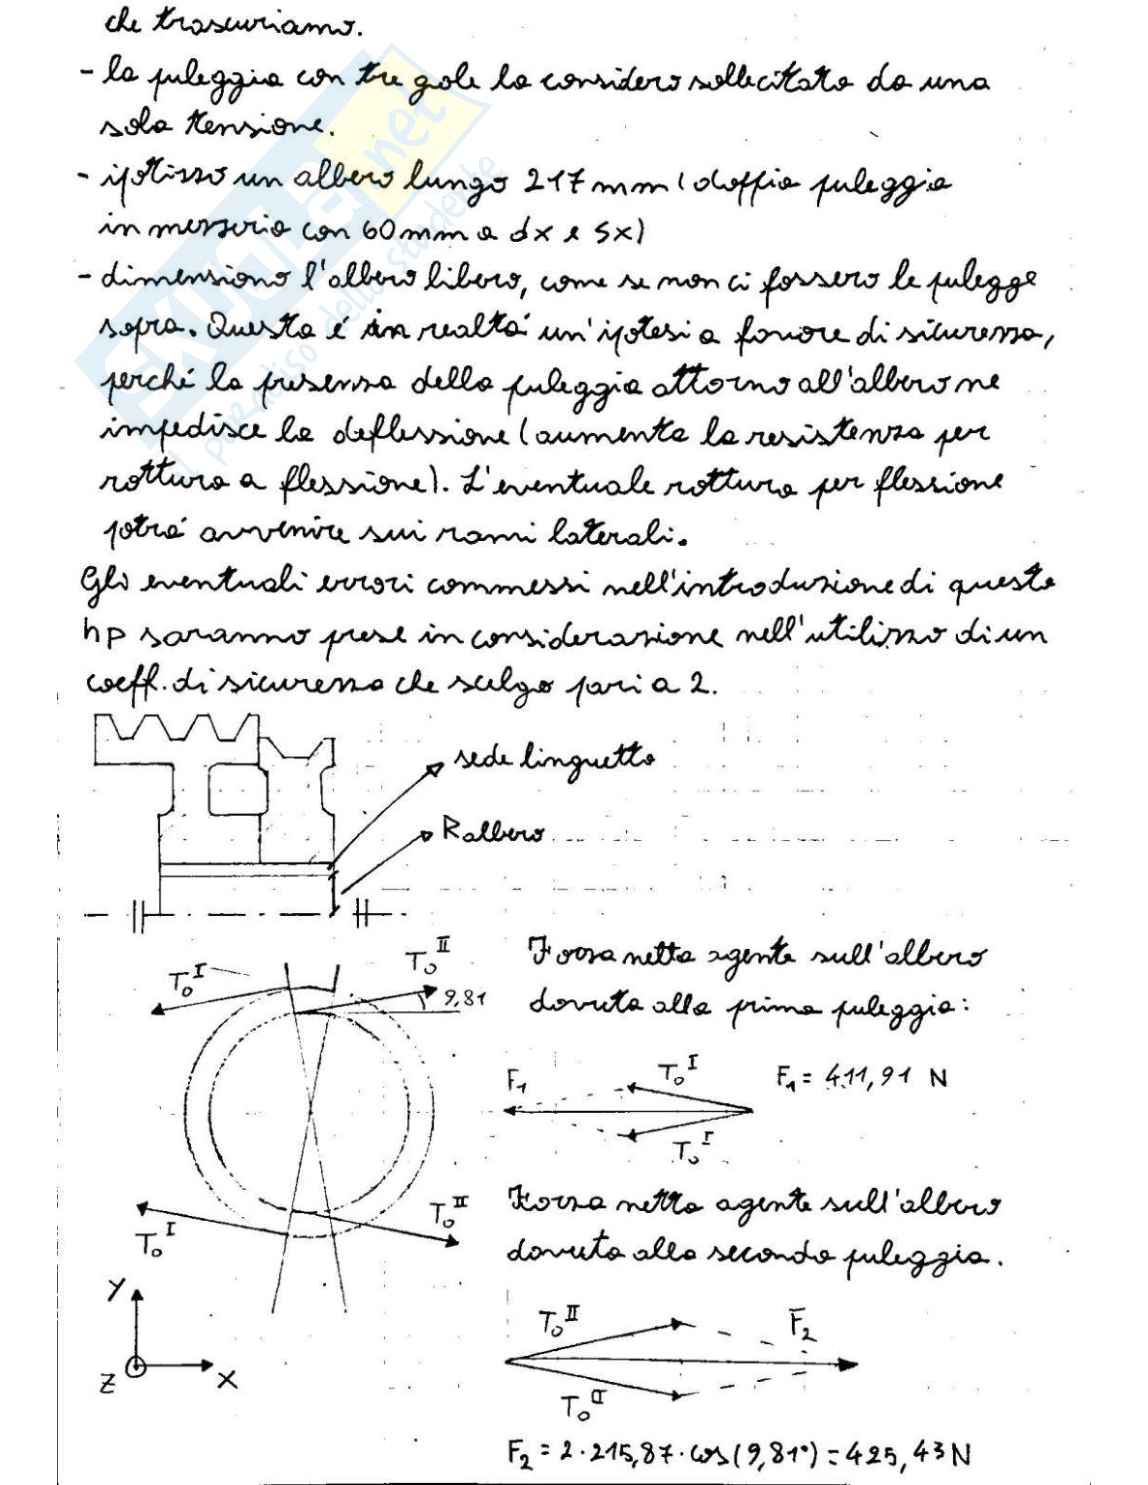 che trascuriamo.
- la puleggia con tre gole la considero sollecitata da una
sola tensione.
- ipotizzo un albero lungo 217 mm (doppia puleggia
in mezzeria con 60 mm a dx e sx)
- dimensiono l'albero libero, come se non ci fossero le pulegge
sopra. Questa é in realtá un'ipotesi a favore di sicurezza,
perché la presenza della puleggia attorno all'albero ne
impedisce la deflessione (aumenta la resistenza per
rottura a flessione). L'eventuale rottura per flessione
potrá avvenire sui rami laterali.
Gli eventuali errori commessi nell'introduzione di queste
hp saranno prese in considerazione nell'utilizzo di un
coeff. di sicurezza che scelgo pari a 2.
sede linguetta
R albero
T₀ᴵ
T₀ᴵᴵ
9,81
Forza netta agente sull'albero
dovuta alla prima puleggia:
F₁
T₀ᴵ
T₀ᴵ
F₁ = 411,91 N
T₀ᴵ
T₀ᴵᴵ
Forza netta agente sull'albero
dovuta alla seconda puleggia.
Y
Z
X
T₀ᴵᴵ
F₂
T₀ᴵᴵ
F₂ = 2·215,87·cos(9,81°) = 425,43 N
SKUOLA.net
il paradiso dello studente